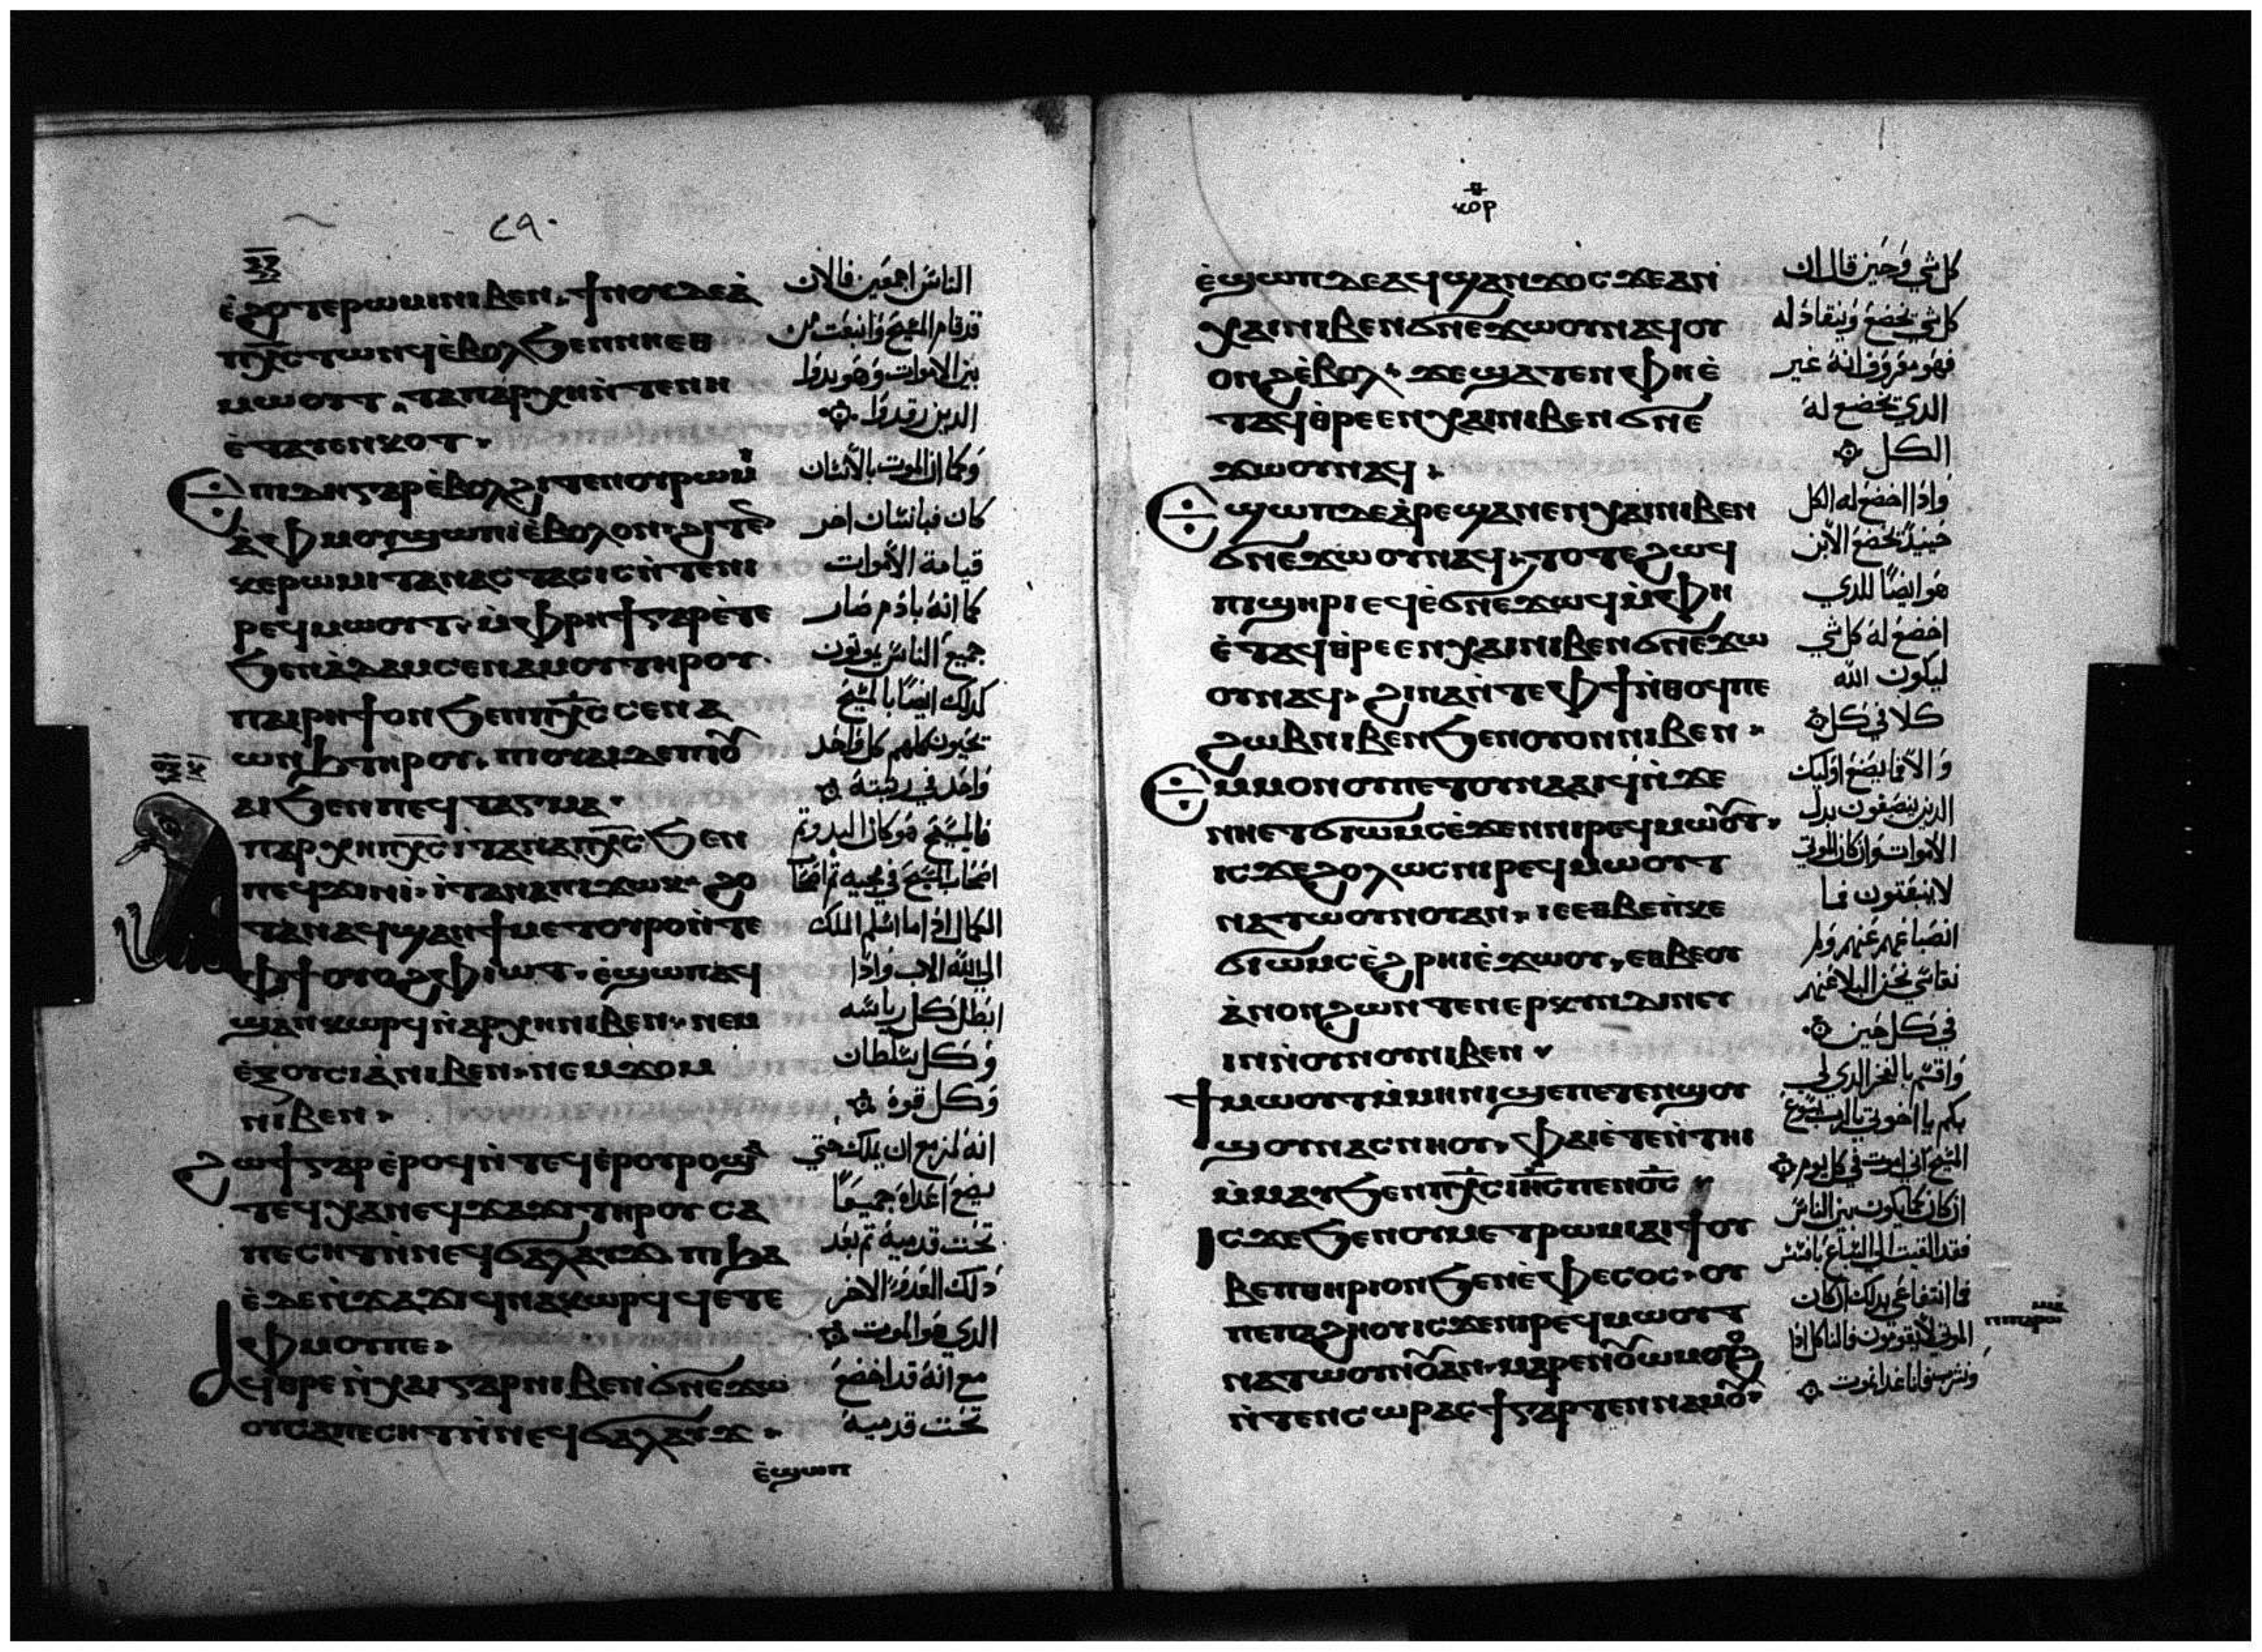 ⲉ̀ϩⲟⲧⲉⲣⲱⲙⲓⲛⲓⲃⲉⲛ ϯⲛⲟⲩⲇⲉⲁ̀
ⲡⲭ̅ⲥ̅ⲧⲱⲛϥⲉ̀ⲃⲟⲗϧⲉⲛⲛⲏⲉⲑ
ⲙⲱⲟⲩⲧ ⲧⲁⲡⲁⲣⲭⲏⲛ̀ⲧⲉⲛⲏ
ⲉ̀ⲧⲁⲩⲉⲛⲕⲟⲧ
Ⲉⲡⲓⲇⲏⲅⲁⲣⲉ̀ⲃⲟⲗϩⲓⲧⲉⲛⲟⲩⲣⲱⲙⲓ
ⲁ̀ⲫⲙⲟⲩϣⲱⲡⲓⲉ̀ⲃⲟⲗⲟⲛϩⲓⲧⲉⲛ
ⲕⲉⲣⲱⲙⲓⲧⲁⲛⲁⲥⲧⲁⲥⲓⲥⲛ̀ⲧⲉⲛⲓ
ⲣⲉϥⲙⲱⲟⲩⲧ ⲙ̀ⲫⲣⲏϯⲅⲁⲣⲉ̀ⲧⲉ
ϧⲉⲛⲁ̀ⲇⲁⲙⲥⲉⲛⲁⲙⲟⲩⲧⲏⲣⲟⲩ
ⲡⲁⲓⲣⲏϯⲟⲛϧⲉⲛⲡⲭ̅ⲥ̅ⲥⲉⲛⲁ
ⲱⲛϧⲧⲏⲣⲟⲩ ⲡⲓⲟⲩⲁⲓⲇⲉⲡⲓⲟⲩ
ⲁⲓϧⲉⲛⲡⲉϥⲧⲁⲅⲙⲁ
ⲡⲁⲣⲭⲏⲡⲭ̅ⲥ̅ⲓⲧⲁⲛⲁⲡⲭ̅ⲥ̅ϧⲉⲛ
ⲡⲉϥϫⲓⲛⲓ̀ ⲓ̀ⲧⲁⲛⲁⲡⲓϫⲱⲕ ϩⲟ
ⲧⲁⲛⲁϥϣⲁⲛϯⲙⲉⲧⲟⲩⲣⲟⲛ̀ⲧⲉ
ⲫϯⲟⲩⲟϩⲫⲓⲱⲧ ⲉ̀ϣⲱⲡⲁϥ
ϣⲁⲛⲕⲱⲣϥⲛ̀ⲁⲣⲭⲏⲛⲓⲃⲉⲛ ⲛⲉⲙ
ⲉ̀ⲝⲟⲩⲥⲓⲁ̀ⲛⲓⲃⲉⲛ ⲛⲉⲙϫⲟⲙ
ⲛⲓⲃⲉⲛ
ϩⲱϯⲅⲁⲣⲉ̀ⲣⲟϥⲛ̀ⲧⲉϥⲉ̀ⲣⲟⲩⲣⲟϣⲁ
ⲧⲉϥⲭⲁⲛⲉϥϫⲁϫⲓⲧⲏⲣⲟⲩⲥⲁ
ⲡⲉⲥⲏⲧⲛ̀ⲛⲉϥϭⲁⲗⲁⲩϫ ⲡⲓϧⲁ
ⲉ̀ⲇⲉⲛ̀ϫⲁϫⲓϥⲛⲁⲕⲱⲣϥϥⲉⲧⲉ
ⲫⲙⲟⲩⲡⲉ
ⲁϥⲑⲣⲉⲛ̀ⲭⲁⲓⲅⲁⲣⲛⲓⲃⲉⲛϭⲛⲉϫⲱ
ⲟⲩⲥⲁⲡⲉⲥⲏⲧⲛ̀ⲛⲉϥϭⲁⲗⲁⲩϫ
ⲉ̀ϣⲱⲡ
٢٩٠
الناس اجمعين فالان
قد قام المسيح وانبعث من
بين الاموات وهو بدوا
الدين رقدوا
وكما ان الموت بالانسان
كان فبانسان اخر
قيامة الاموات
كما انه بادم صار
جميع الناس يموتون
كدلك ايضا بالمسيح
تحيون كلهم كل واحد
واحد في رتبته
فالمسيح هو كان البدو ثم
اصحاب المسيح في مجيه ثم انقضا
الكمال ادا ما اسلم الملك
الي الله الاب وادا
ابطل كل رياسه
وكل سلطان
وكل قوة
انه لمزمع ان يملك حتي
يضع اعداه جميعا
تحت قدميه ثم بعد
دلك العدو الاخر
الدي هو الموت
مع انه قد اخضع
تحت قدميه
ⲕⲟⲣ
ⲉ̀ϣⲱⲡⲇⲉⲁϥϣⲁⲛϫⲟⲥϫⲉⲁⲛ
ⲭⲁⲓⲛⲓⲃⲉⲛϭⲛⲉϫⲱⲟⲩⲛⲁϥⲟⲩ
ⲟⲛϩⲉ̀ⲃⲟⲗ ϫⲉϣⲁⲧⲉⲛⲫⲏⲉ̀
ⲧⲁϥⲑⲣⲉⲉⲛⲭⲁⲓⲛⲓⲃⲉⲛϭⲛⲉ
ϫⲱⲟⲩⲛⲁϥ
Ⲉϣⲱⲡⲇⲉⲁ̀ⲣⲉϣⲁⲛⲉⲛⲭⲁⲓⲛⲓⲃⲉⲛ
ϭⲛⲉϫⲱⲟⲩⲛⲁϥ ⲧⲟⲧⲉϩⲱϥ
ⲡⲓϣⲏⲣⲓⲉϥⲉ̀ϭⲛⲉϫⲱϥⲙ̀ⲫⲏ
ⲉ̀ⲧⲁϥⲑ̀ⲣⲉⲉⲛⲭⲁⲓⲛⲓⲃⲉⲛϭⲛⲉϫⲱ
ⲟⲩⲛⲁϥ ϩⲓⲛⲁⲛ̀ⲧⲉⲫϯⲛ̀ⲑⲟϥⲡⲉ
ϩⲱⲃⲛⲓⲃⲉⲛϧⲉⲛⲟⲩⲟⲛⲛⲓⲃⲉⲛ
Ⲉⲙⲙⲟⲛⲟⲩⲡⲉⲧⲟⲩⲛⲁⲁⲓϥⲛ̀ϫⲉ
ⲛⲏⲉⲧϭⲓⲱⲙⲥⲉ̀ϫⲉⲛⲛⲓⲣⲉϥⲙⲱⲟⲩⲧ
ⲓⲥϫⲉϩⲟⲗⲱⲥⲛⲓⲣⲉϥⲙⲱⲟⲩⲧ
ⲛⲁⲧⲱⲟⲩⲛⲟⲩⲁⲛ ⲓⲉⲉⲑⲃⲉⲛ̀ⲕⲉ
ϭⲓⲱⲙⲥⲉ̀ϩⲣⲏⲓⲉ̀ϫⲱⲟⲩ ⲉⲑⲃⲉⲟⲩ
ⲁ̀ⲛⲟⲛϩⲱⲛⲧⲉⲛⲉⲣⲕⲩⲛⲇⲓⲛⲉⲩ
ⲓⲛⲛ̀ⲟⲩⲛⲟⲩⲛⲓⲃⲉⲛ
ϯⲙⲱⲟⲩⲧⲙ̀ⲙⲏⲛⲓϣⲉⲡⲉⲧⲉⲛϣⲟⲩ
ϣⲟⲩⲛⲁⲥⲛⲏⲟⲩ ⲫⲁⲓⲉ̀ⲧⲉⲛ̀ⲧⲏⲓ
ⲙ̀ⲙⲁⲩϧⲉⲛⲡⲭ̅ⲥ̅ⲓⲏ̅ⲥ̅ⲡⲉⲛⲟ̅ⲥ̅
Ⲓⲥϫⲉϧⲉⲛⲟⲩⲙⲉⲧⲣⲱⲙⲓⲁⲓϯⲟⲩ
ⲃⲉⲡⲑⲏⲣⲓⲟⲛϧⲉⲛⲉ̀ⲫⲉⲥⲟⲥ ⲟⲩ
ⲡⲉⲡⲁϩⲏⲟⲩⲓⲥϫⲉⲛⲓⲣⲉϥⲙⲱⲟⲩⲧ
ⲛⲁⲧⲱⲟⲩⲛⲟⲩⲁⲛ ⲙⲁⲣⲉⲛⲟⲩⲱⲙⲟⲩⲟϩ
ⲛ̀ⲧⲉⲛⲥⲱⲣⲁⲥϯⲅⲁⲣⲧⲉⲛⲛⲁⲙⲟⲩ
كل شي وحين قال ان
كل شي يخضع وينقاد له
فهو معروف انه غير
الدي تخضع له
الكل
وادا اخضع له الكل
حينيد يخضع الابن
هو ايضا للدي
اخضع له كل شي
ليكون الله
كلا في كل
والا فما يصنع اوليك
الدين ينصبغون بدل
الاموات وان كان الموتي
لا ينبعثون فما
انصباغهم عنهم ولم
نقاسي نحن البلا عنهم
في كل حين
واقسم بالفخر الدي لي
بكم يا اخوتي بالرب يسوع
المسيح اني اموت في كل يوم
ان كان كما يكون بين الناس
فقد القيت الي السباع بافسس
فما انتفاعي بدلك ان كان
الموتي لا يقومون فلناكل ادا
ونشرب فانا غدا نموت